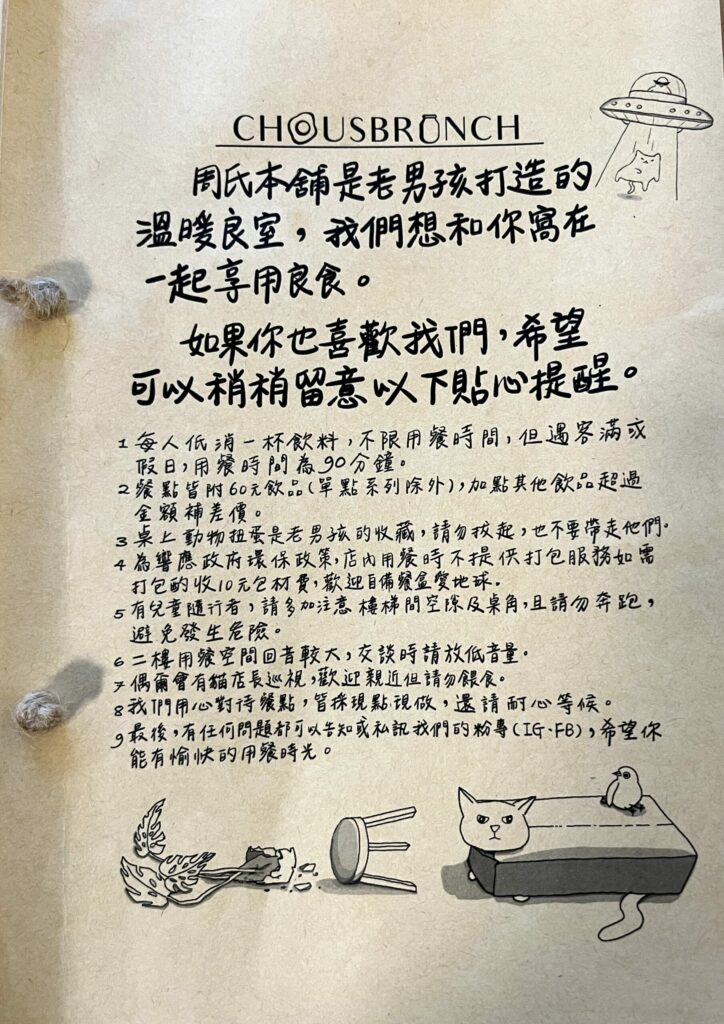 CHOUSBRUNCH
周氏本舖是老男孩打造的
溫暖良室，我們想和你窩在
一起享用良食。
如果你也喜歡我們，希望
可以稍稍留意以下貼心提醒。
1 每人低消一杯飲料，不限用餐時間，但遇客滿或
假日，用餐時間為90分鐘。
2 餐點皆附60元飲品(單點系列除外)，加點其他飲品超過
金額補差價。
3 桌上動物扭蛋是老男孩的收藏，請勿拔起，也不要帶走他們。
4 為響應政府環保政策，店內用餐時不提供打包服務如需
打包酌收10元包材費，歡迎自備餐盒愛地球.
5 有兒童隨行者，請多加注意樓梯間空隙及桌角，且請勿奔跑，
避免發生危險。
6 二樓用餐空間回音較大，交談時請放低音量。
7 偶爾會有貓店長巡視，歡迎親近但請勿餵食。
8 我們用心對待餐點，皆採現點現做，還請耐心等候。
9 最後，有任何問題都可以告知或私訊我們的粉專(IG、FB)，希望你
能有愉快的用餐時光。